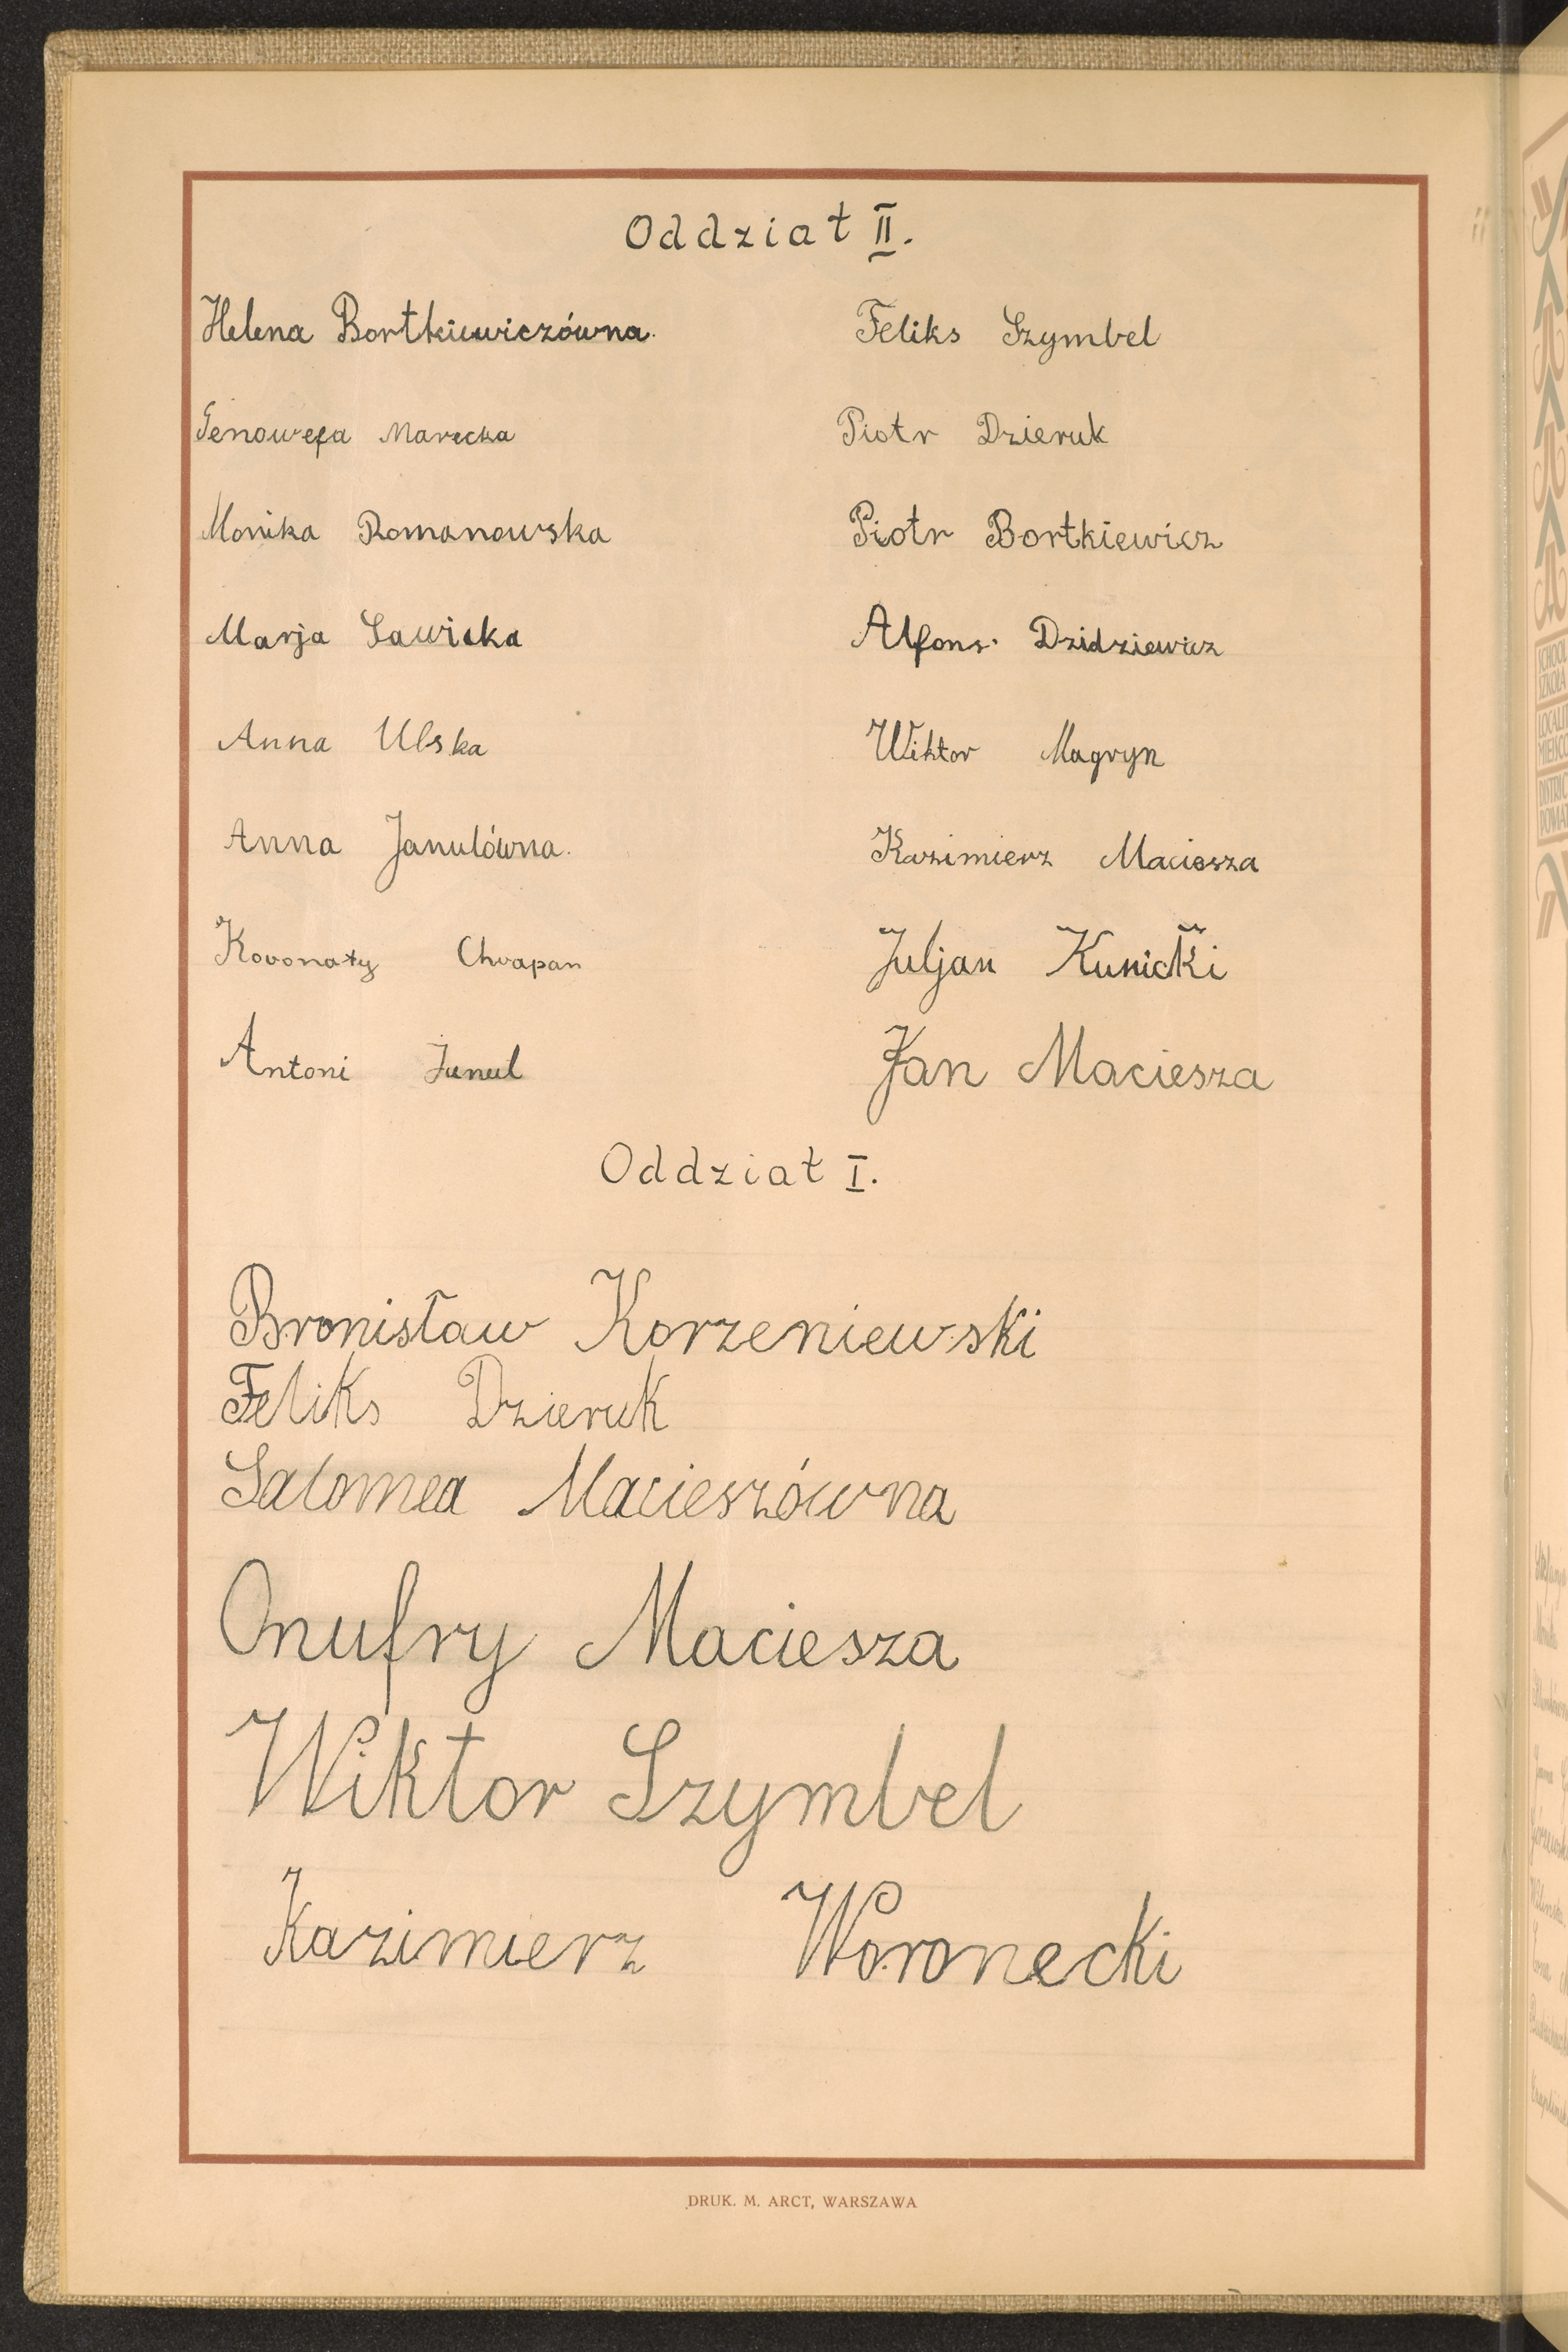 Oddział II.
Helena Bortkiewiczówna.
Genowefa Marecka
Monika Romanowska
Marja Sawicka
Anna Ulska
Anna Janulówna.
Koronaty Chrapan
Antoni Janul
Feliks Szymbel
Piotr Dzieruk
Piotr Bortkiewicz
Alfons Dzidziewicz
Wiktor Magryn
Kazimierz Maciesza
Juljan Kunicki
Jan Maciesza
Oddział I.
Bronisław Korzeniewski
Feliks Dzieruk
Salomea Macieszówna
Onufry Maciesza
Wiktor Szymbel
Kazimierz Woronecki
DRUK. M. ARCT, WARSZAWA